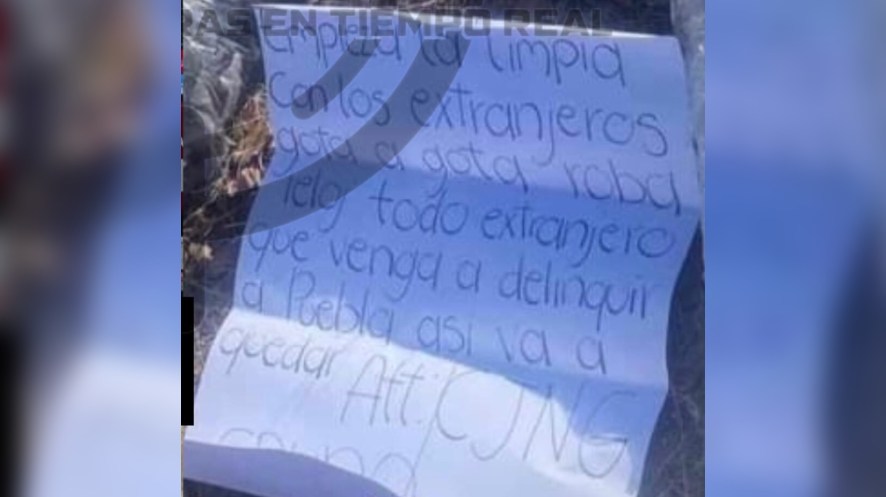 AS EN TIEMPO REAL
Empieza la limpia
Con los extranjeros
gota a gota roba
tela todo extranjero
que venga a delinquir
a Puebla asi va a
quedar Att: CJNG